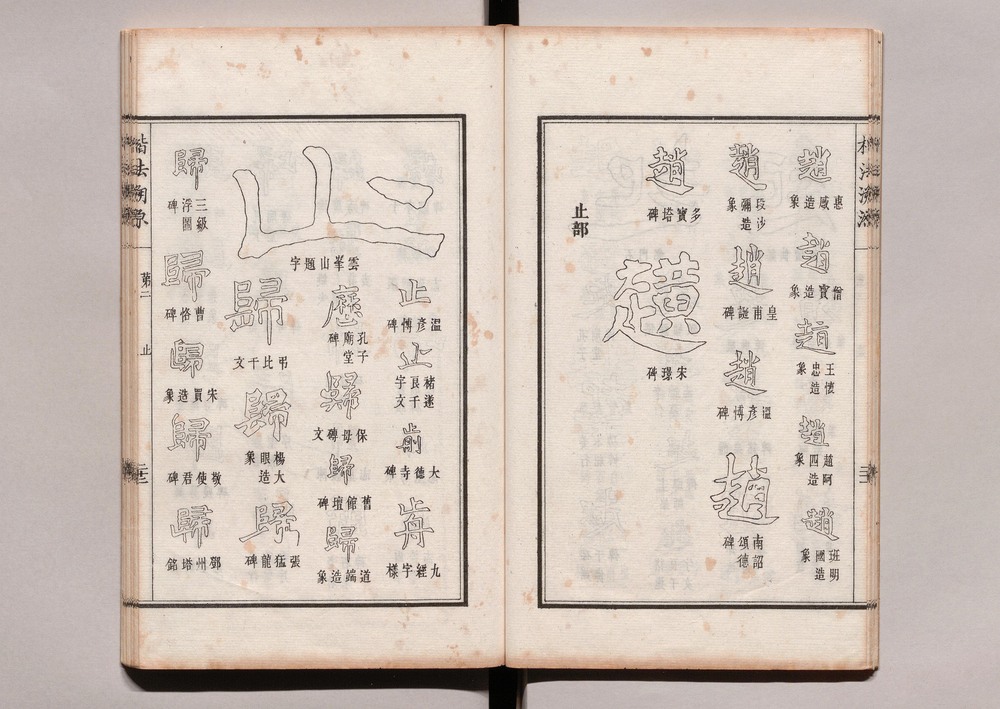 趙
惠感造象
趙
僧寶造象
趙
王懷忠造象
趙
趙阿四造象
趙
班明國造象
趙
段沙彌造象
趙
皇甫誕碑
趙
溫彥博碑
趙
南詔頌德碑
趙
多寶塔碑
宋璟碑
止部
止
雲峯山題字
止
溫彥博碑
止
褚遂良千字文
歬
大德寺碑
九經字樣
歷
孔子廟堂碑
歸
保母磚文
歸
舊館壇碑
歸
道端造象
歸
弔比干文
歸
楊大眼造象
歸
張猛龍碑
歸
三級浮圖碑
歸
曹恪碑
歸
宋買造象
歸
敬使君碑
歸
鄧州塔銘
楷法溯源
第二
止